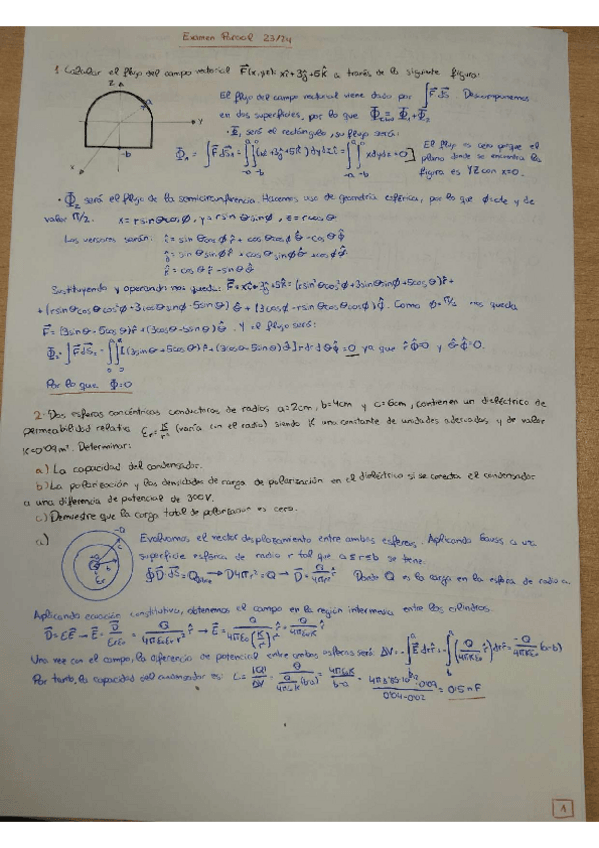 Examen Parcial 23/24
1. Calcular el flujo del campo vectorial F⃗(x,y,z)= xî+3ĵ+5k̂ a través de la siguiente figura:
z
a
y
-b
x
El flujo del campo vectorial viene dado por ∫F⃗ dS⃗. Descomponemos
en dos superficies, por lo que Φ = Φ₁+Φ₂
· Φ₁ será el rectángulo, su flujo será:
Φ₁ = ∫F⃗dS⃗₁ = ∫∫(xî+3ĵ+5k̂)dydzî = ∫∫xdydz = 0
El flujo es cero porque el
plano donde se encuentra la
figura es YZ con x=0.
· Φ₂ será el flujo de la semicircunferencia. Hacemos uso de geometría esférica, por lo que φ=cte y de
valor π/2. x = r sinθ cosφ, y = r sinθ sinφ, z = r cosθ
Los versores serán: î = sinθ cosφ r̂ + cosθ cosφ θ̂
ĵ = sinθ sinφ r̂ + cosθ sinφ θ̂ + cosφ φ̂
k̂ = cosθ r̂ - sinθ θ̂
Sustituyendo y operando nos queda: F⃗ = xî+3ĵ+5k̂ = (r sin²θ cos²φ + 3 sinθ sinφ + 5cosθ) r̂ +
+ (r sinθ cosθ cos²φ + 3cosθ sinφ - 5 sinθ) θ̂ + (3cosφ - r sinθ cosφ φ̂. Como φ=π/2 nos queda
F⃗ = (3sinθ - 5cosθ) r̂ + (3cosθ - 5inθ) θ̂. Y el flujo será:
Φ₂ = ∫F⃗dS⃗₂ = ∫∫[(3sinθ + 5cosθ) r̂ + (3cosθ - 5inθ) θ̂] r dr dθ φ̂ = 0 ya que r̂·φ̂=0 y θ̂·φ̂=0.
Por lo que Φ=0
2- Dos esferas concéntricas conductoras de radios a=2cm, b=4cm y c=6cm, contienen un dieléctrico de
permeabilidad relativa εr = K/r² (varía con el radio) siendo K una constante de unidades adecuadas y de valor
K=0'09m². Determinar:
a) La capacidad del condensador.
b) La polarización y las densidades de carga de polarización en el dieléctrico si se conecta el condensador
a una diferencia de potencial de 300V.
c) Demuestre que la carga total de polarización es cero.
a)
-Q
c
b
εr
Evaluamos el vector desplazamiento entre ambas esferas. Aplicando Gauss a una
superficie esférica de radio r tal que a≤r≤b se tiene:
∮D⃗·dS⃗ = Q → D4πr² = Q → D⃗ = Q/4πr² r̂ Donde Q es la carga en la esfera de radio a.
Aplicando ecuación constitutiva, obtenemos el campo en la región intermedia entre los cilindros.
D⃗ = εE⃗ → E⃗ = D⃗/ε₀εr = Q/4πε₀εr r² r̂ → E⃗ = Q/4πε₀(K/r²)r² r̂ = Q/4πε₀K r̂
Una vez con el campo, la diferencia de potencial entre ambas esferas será: ΔV = -∫E⃗dr r̂ = -∫(Q/4πKε₀ r̂)dr r̂ = -Q/4πKε₀ (a-b)
Por tanto, la capacidad del condensador es: C = |Q|/ΔV = Q/(Q/4πε₀K (b-a)) = 4πε₀K/b-a = 4π8'85·10⁻¹²·0'09/0'04-0'02 = 0'5 nF
1